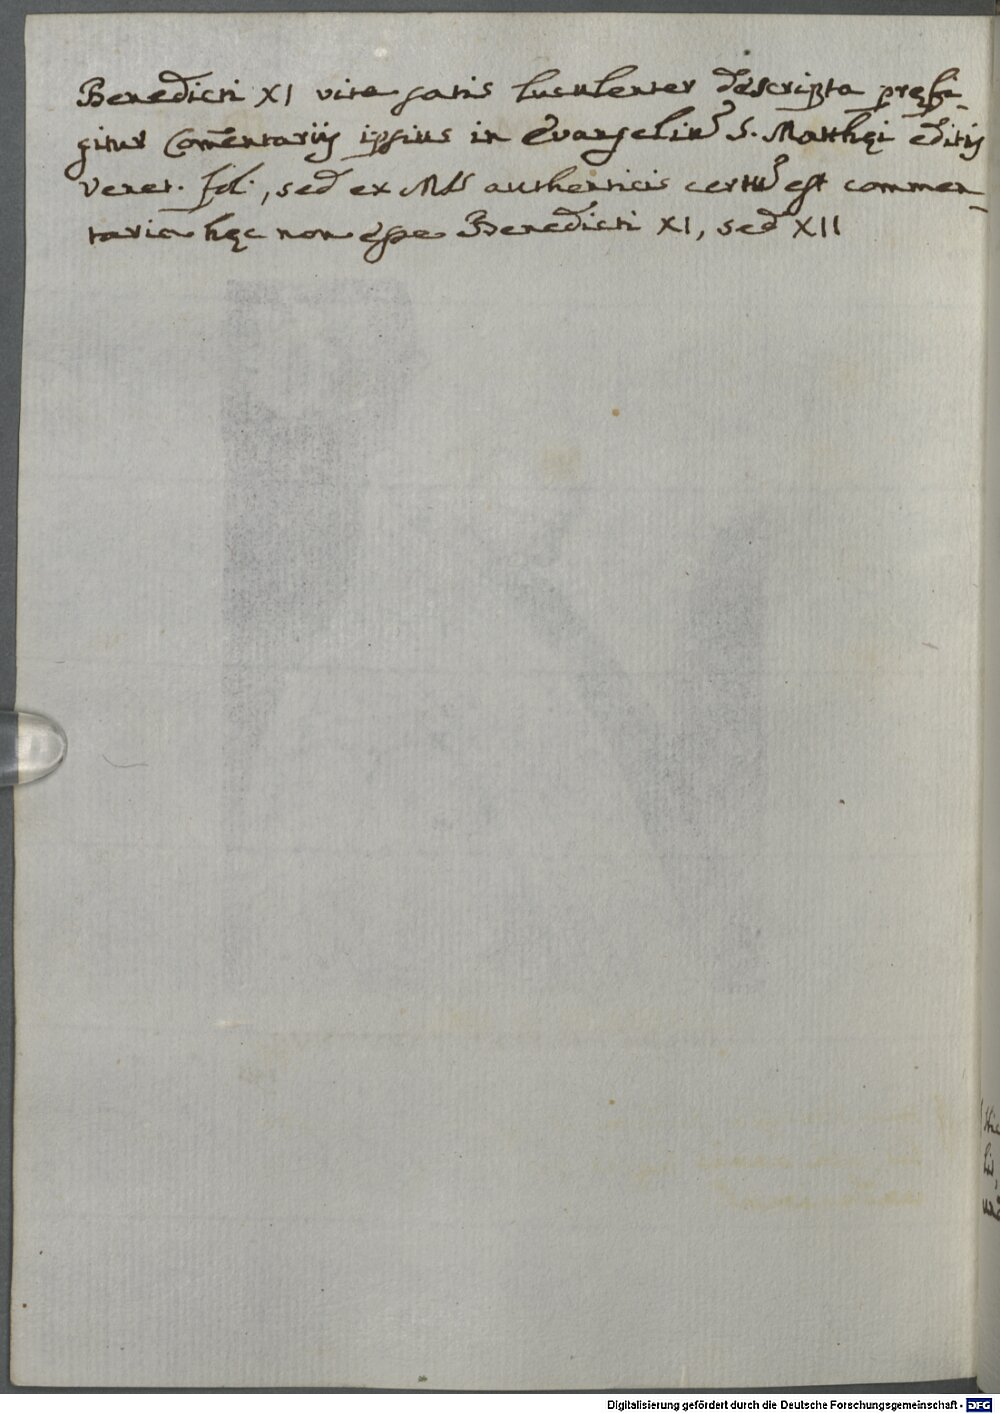 Benedicti XI vita satis luculenter descripta pręfi-
gitur Com̄entariis ipsius in Evangeliū S. Matthęi editis
Venet. fol., sed ex MSS authenticis certū est commen-
taria hęc non esse Benedicti XI, sed XII
Digitalisierung gefördert durch die Deutsche Forschungsgemeinschaft - DFG